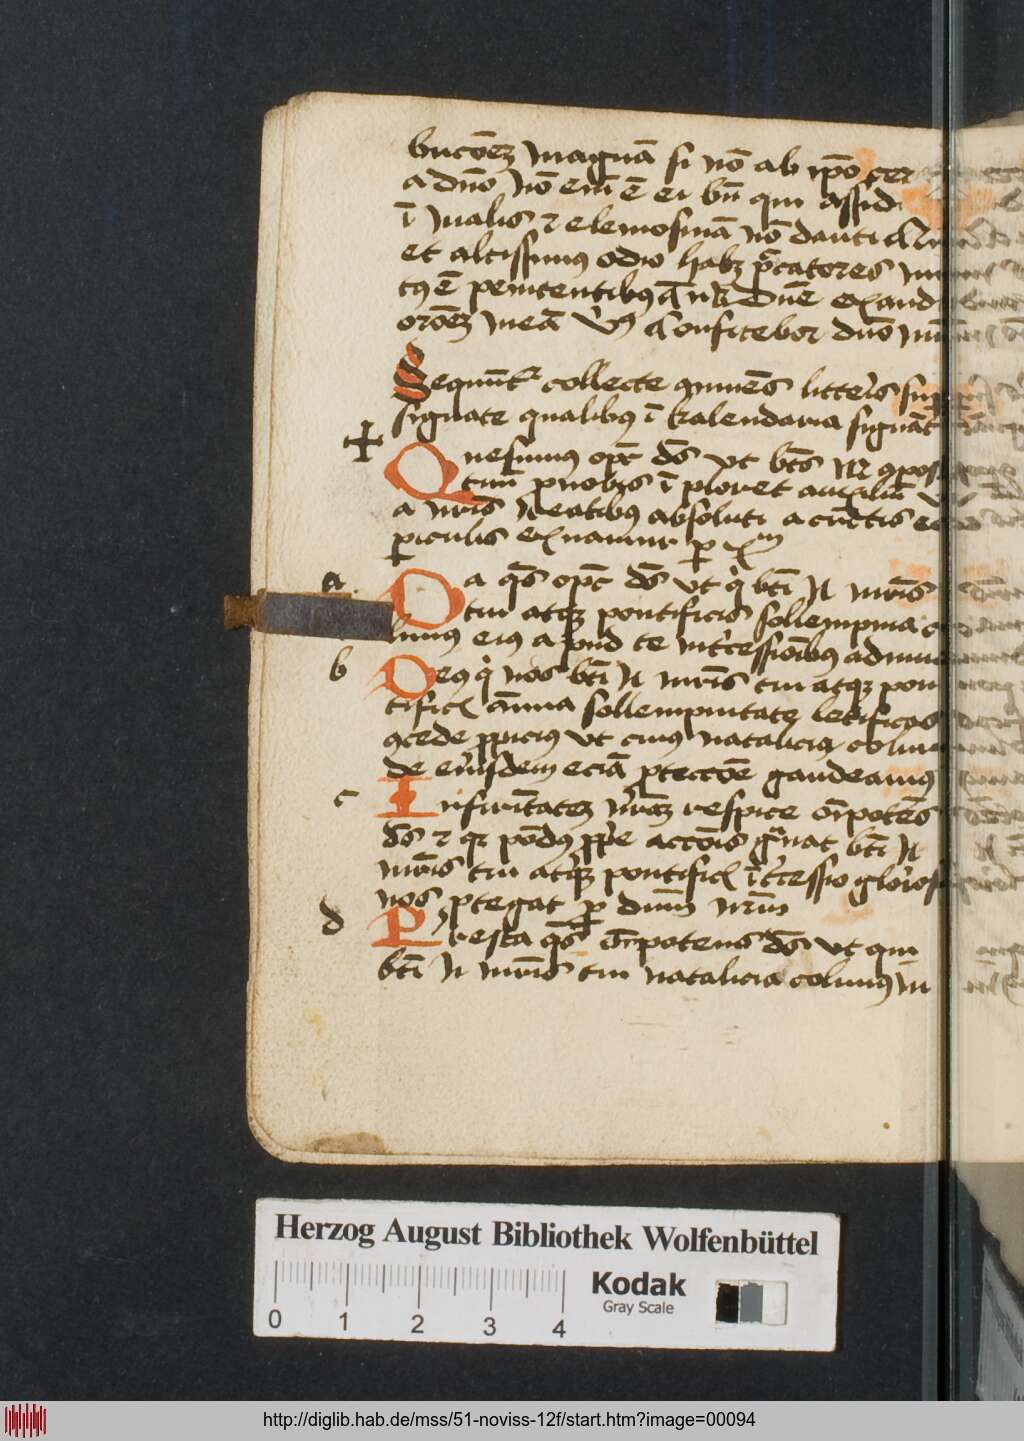 bucōez magnā si nō ab ip̄o cer
a dūo nō em̄ ē ei bn̄ qui assid
ī malis ⁊ elemosinā nō danti
et altissimus odio habz pc̄catores
tꝯ ē penitentibꝯ Dn̄e exaud
orōez meā Confitebor dūo
Sequūtur collecte quinēs litteris
signate qualibꝯ ī kalendaria signāt
✝
Quesumus opc̄ ds̄ vt bt̄s N ꝯpos
tuū p nobis īploret auxiliū
a nrīs reatibꝯ absoluti a cūctis
piculis exuamur p xm̄
a
Da qs̄ opc̄ ds̄ vt q bt̄i N mr̄is
tui atqz pontificis sollempnia
limus eius apud te int'cessiōibꝯ
b
Deꝯ q nos bt̄i N mr̄is tui atqz pon
tificis ānua sollempnitate letificas
ꝯcede ppicius vt cuius natalicia colim
de eiusdem eciā pteccōe gaudeamus
c
Infirmitatez nrāz respice om̄potēs
ds̄ ⁊ qr pōdꝯ pp'e accōis g̈uat bt̄i N
mr̄is tui atqz pontific̄ īt'cessio glorios
nos ptegat p dnm̄ nrm̄
d
Presta qs̄ om̄ipotens ds̄ vt qui
bt̄i N mr̄is tui natalicia colimus
Herzog August Bibliothek Wolfenbüttel
Kodak
Gray Scale
0 1 2 3 4
http://diglib.hab.de/mss/51-noviss-12f/start.htm?image=00094